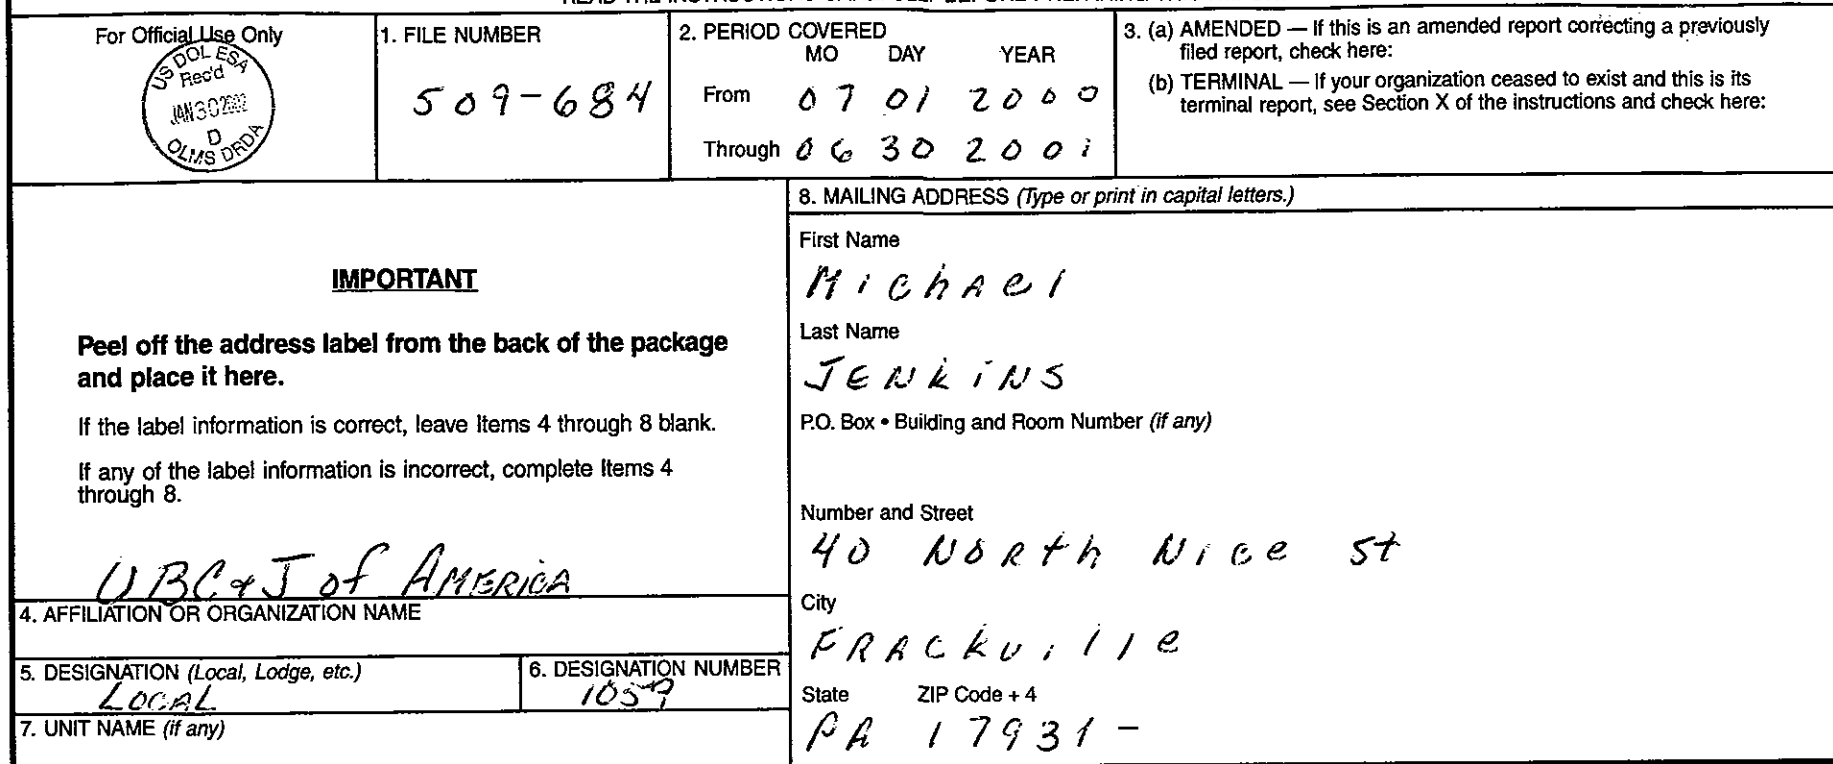 For Official Use Only
US DOL ESA
Rec'd
JAN 30 2002
D
OLMS DRDA
1. FILE NUMBER
509-684
2. PERIOD COVERED
MO DAY YEAR
From 07 01 2000
Through 06 30 2001
3. (a) AMENDED — If this is an amended report correcting a previously
filed report, check here:
(b) TERMINAL — If your organization ceased to exist and this is its
terminal report, see Section X of the instructions and check here:
IMPORTANT
Peel off the address label from the back of the package
and place it here.
If the label information is correct, leave Items 4 through 8 blank.
If any of the label information is incorrect, complete Items 4
through 8.
UBC & J of AMERICA
4. AFFILIATION OR ORGANIZATION NAME
5. DESIGNATION (Local, Lodge, etc.)
LOCAL
6. DESIGNATION NUMBER
1059
7. UNIT NAME (if any)
8. MAILING ADDRESS (Type or print in capital letters.)
First Name
MichAel
Last Name
JENkiNS
P.O. Box • Building and Room Number (if any)
Number and Street
40 NORth Nice St
City
FRACkville
State ZIP Code + 4
PA 17931-